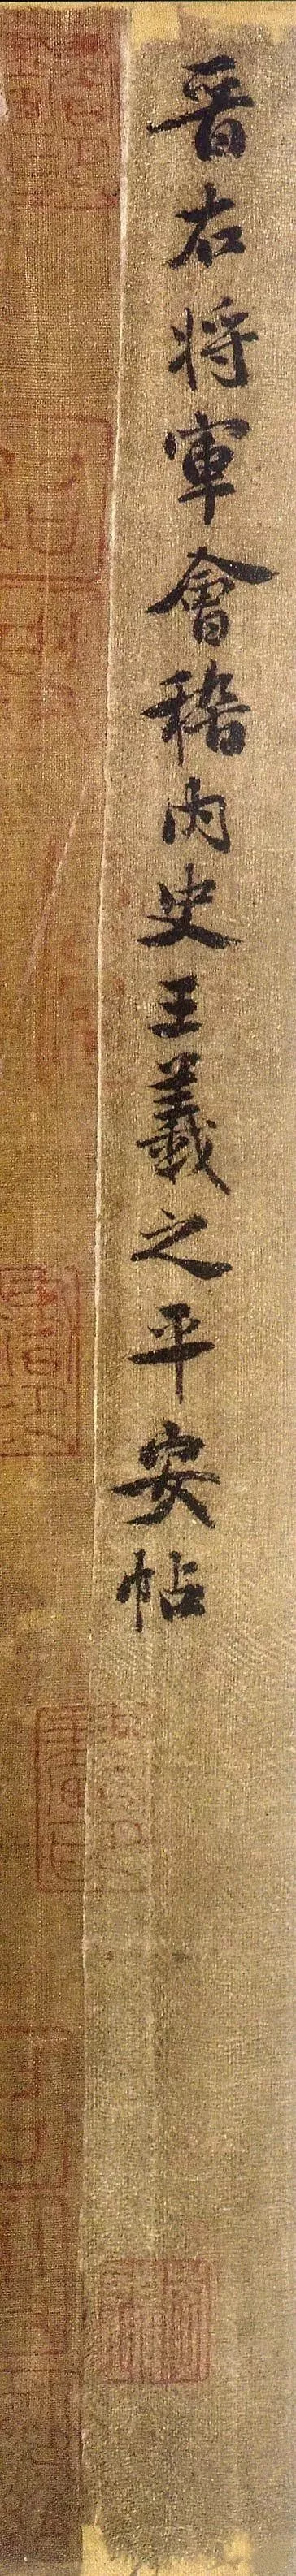 晋右将軍會稽内史王羲之平安帖